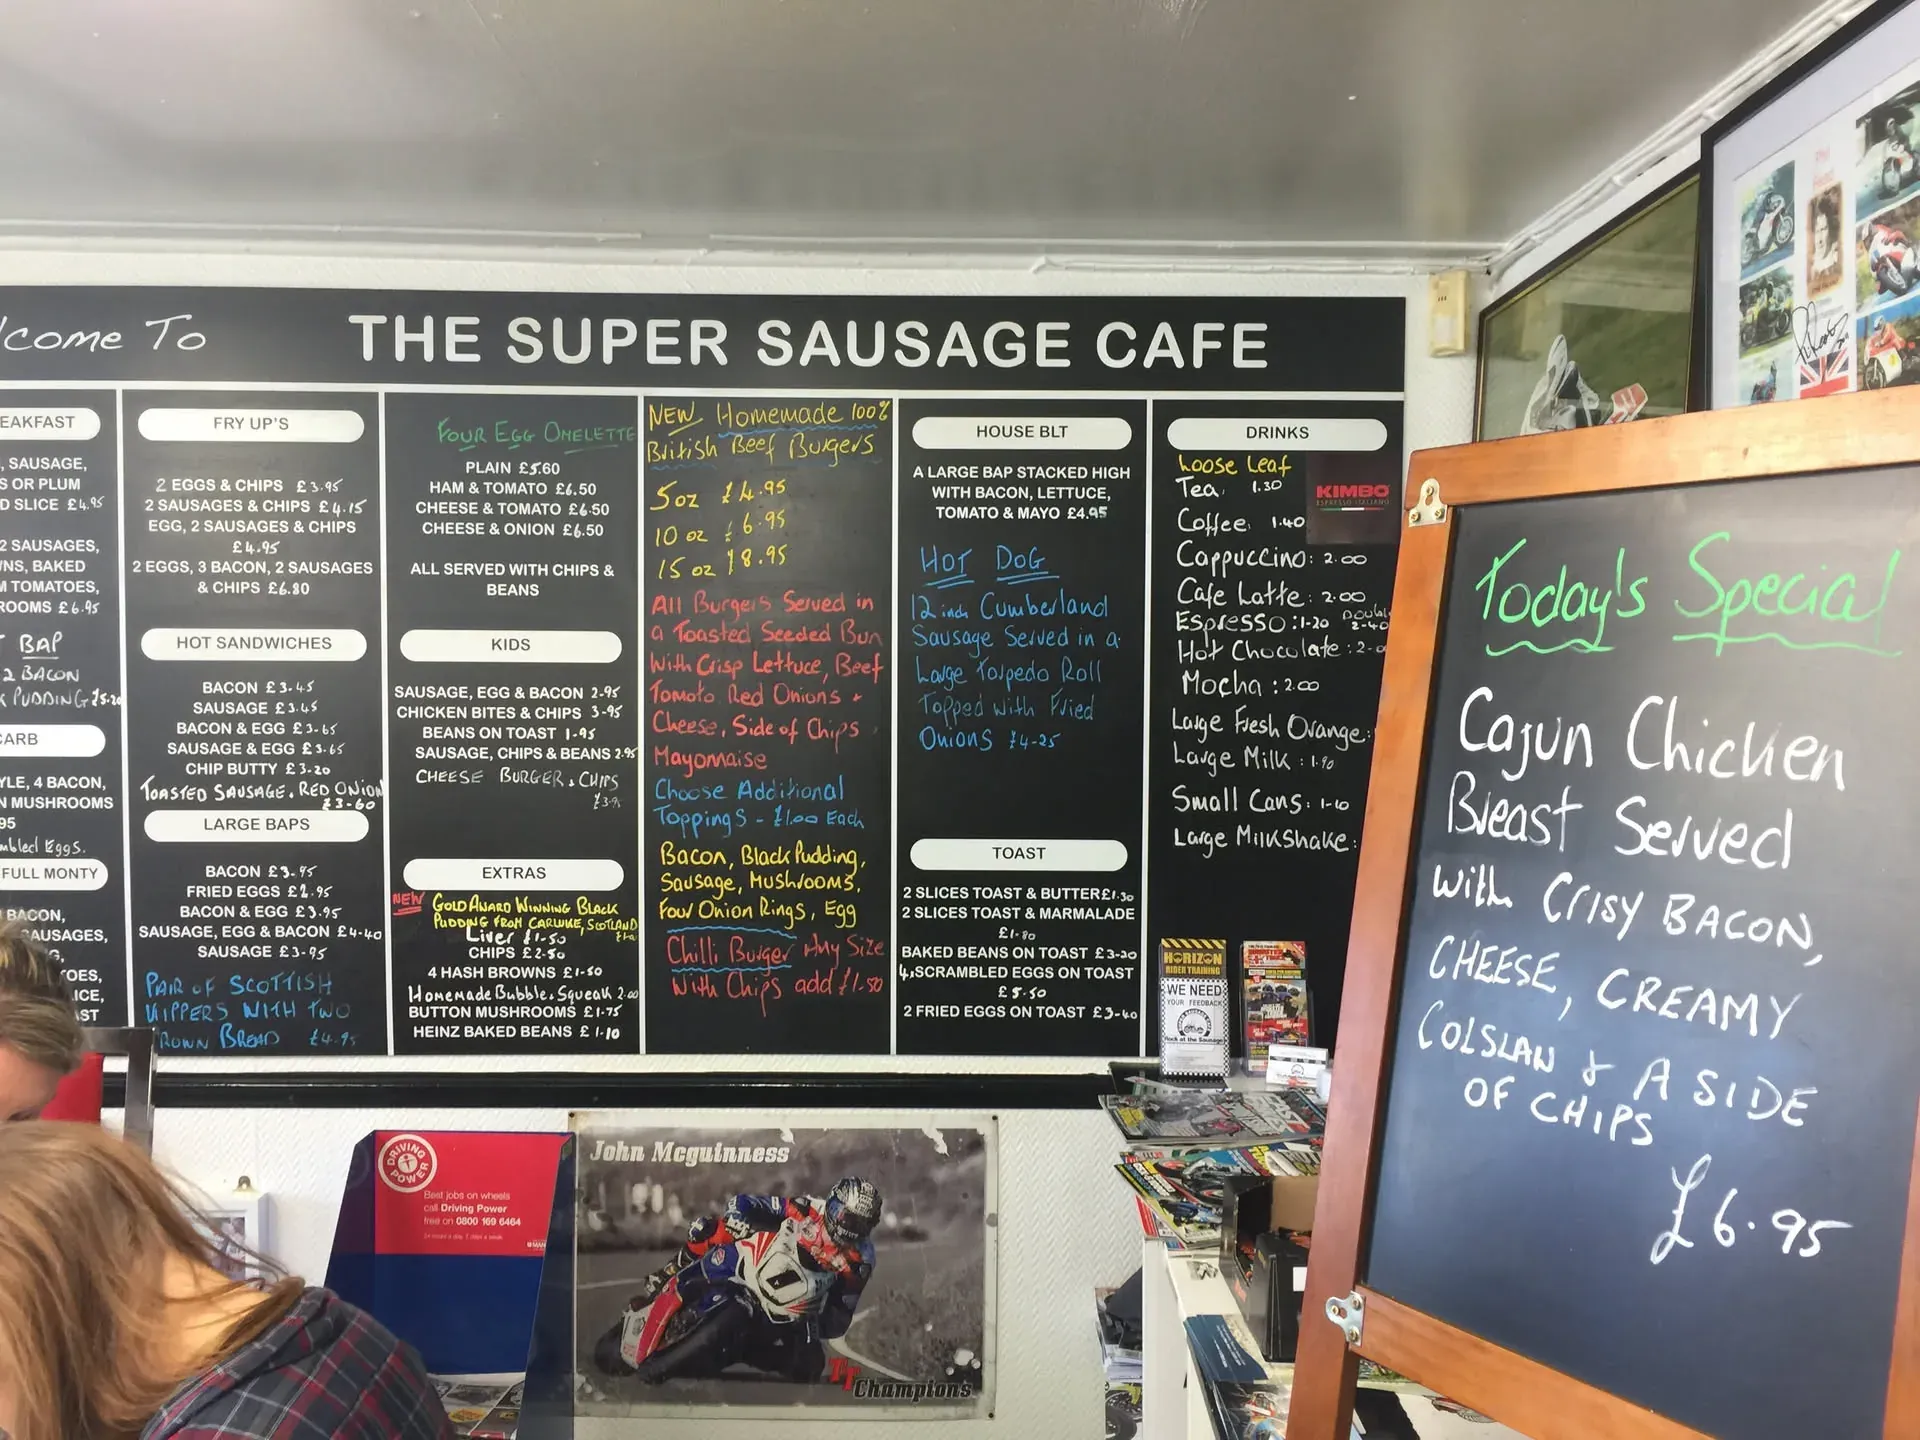 lcome To
THE SUPER SAUSAGE CAFE
EAKFAST
, SAUSAGE,
S OR PLUM
D SLICE £4.95
2 SAUSAGES,
NS, BAKED
M TOMATOES,
ROOMS £6.95
BAP
2 BACON
K PUDDING £5.20
CARB
YLE, 4 BACON,
N MUSHROOMS
95
mbled Eggs.
FULL MONTY
BACON,
AUSAGES,
G,
TOES,
ICE,
AST
FRY UP'S
2 EGGS & CHIPS £3.95
2 SAUSAGES & CHIPS £4.15
EGG, 2 SAUSAGES & CHIPS
£4.95
2 EGGS, 3 BACON, 2 SAUSAGES
& CHIPS £6.80
HOT SANDWICHES
BACON £3.45
SAUSAGE £3.45
BACON & EGG £3.65
SAUSAGE & EGG £3.65
CHIP BUTTY £3.20
TOASTED SAUSAGE & RED ONION
£3-60
LARGE BAPS
BACON £3.95
FRIED EGGS £2.95
BACON & EGG £3.95
SAUSAGE, EGG & BACON £4-40
SAUSAGE £3-95
PAIR OF SCOTTISH
KIPPERS WITH TWO
ROWN BREAD £4.95
FOUR EGG OMELETTE
PLAIN £5.60
HAM & TOMATO £6.50
CHEESE & TOMATO £6.50
CHEESE & ONION £6.50
ALL SERVED WITH CHIPS &
BEANS
KIDS
SAUSAGE, EGG & BACON 2-95
CHICKEN BITES & CHIPS 3-95
BEANS ON TOAST 1-95
SAUSAGE, CHIPS & BEANS 2.95
CHEESE BURGER & CHIPS
£3.95
EXTRAS
NEW GOLD AWARD WINNING BLACK
PUDDING FROM CARLUKE, SCOTLAND
Liver £1-50
CHIPS £2-50
4 HASH BROWNS £1-50
Homemade Bubble & Squeak 2.00
BUTTON MUSHROOMS £1-75
HEINZ BAKED BEANS £1-10
NEW Homemade 100%
British Beef Burgers
5oz £4.95
10 oz £6.95
15 oz £8.95
All Burgers Served in
a Toasted Seeded Bun
With Crisp Lettuce, Beef
Tomato Red Onions +
Cheese, Side of Chips
Mayonnaise
Choose Additional
Toppings - £1.00 Each
Bacon, Black Pudding,
Sausage, Mushrooms,
Four Onion Rings, Egg
Chilli Burger Any Size
With Chips add £1.50
HOUSE BLT
A LARGE BAP STACKED HIGH
WITH BACON, LETTUCE,
TOMATO & MAYO £4.95
HOT DOG
12 inch Cumberland
Sausage Served in a
Large Torpedo Roll
Topped with Fried
Onions £4-25
TOAST
2 SLICES TOAST & BUTTER £1.30
2 SLICES TOAST & MARMALADE
£1.80
BAKED BEANS ON TOAST £3-20
4 SCRAMBLED EGGS ON TOAST
£5-50
2 FRIED EGGS ON TOAST £3-40
DRINKS
Loose Leaf
Tea. 1.30
KIMBO
ESPRESSO ITALIANO
Coffee. 1.40
Cappuccino: 2.00
Cafe Latte: 2.00
Espresso: 1-20 Double 2-40
Hot Chocolate: 2-0
Mocha: 2.00
Large Fresh Orange:
Large Milk: 1.90
Small Cans: 1-10
Large MilkShake:
Today's Special
Cajun Chicken
Breast Served
with Crisy BACON,
CHEESE, CREAMY
COLSLAW & A SIDE
OF CHIPS
£6.95
HORIZON
RIDER TRAINING
WE NEED
YOUR FEEDBACK
Rock at the Sausage
DRIVING POWER
Best jobs on wheels
call Driving Power
free on 0800 169 6464
24 hours a day, 7 days a week
John Mcguinness
1
TT
Champions